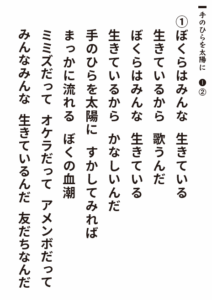 手のひらを太陽に ❶②
①ぼくらはみんな 生きている
生きているから 歌うんだ
ぼくらはみんな 生きている
生きているから かなしいんだ
手のひらを太陽に すかしてみれば
まっかに流れる ぼくの血潮
ミミズだって オケラだって アメンボだって
みんなみんな 生きているんだ 友だちなんだ